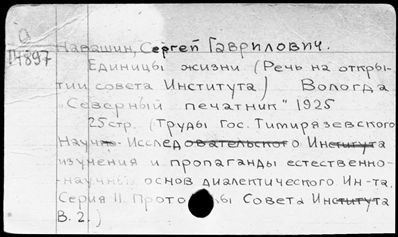 а
П4897
Навашин, Сергей Гаврилович.
Единицы жизни (Речь на откры-
тии совета Института) Вологда
"Северный печатник" 1925
25 стр. (Труды Гос. Тимирязевского
Научн. Исследовательского Института
изучения и пропаганды естественно-
-научных основ диалектического Ин-та.
Серия II. Протоколы Совета Института
В. 2.)